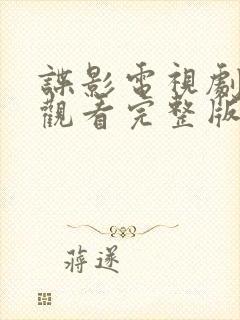 諜影電視劇
觀看完整版
蔣遂